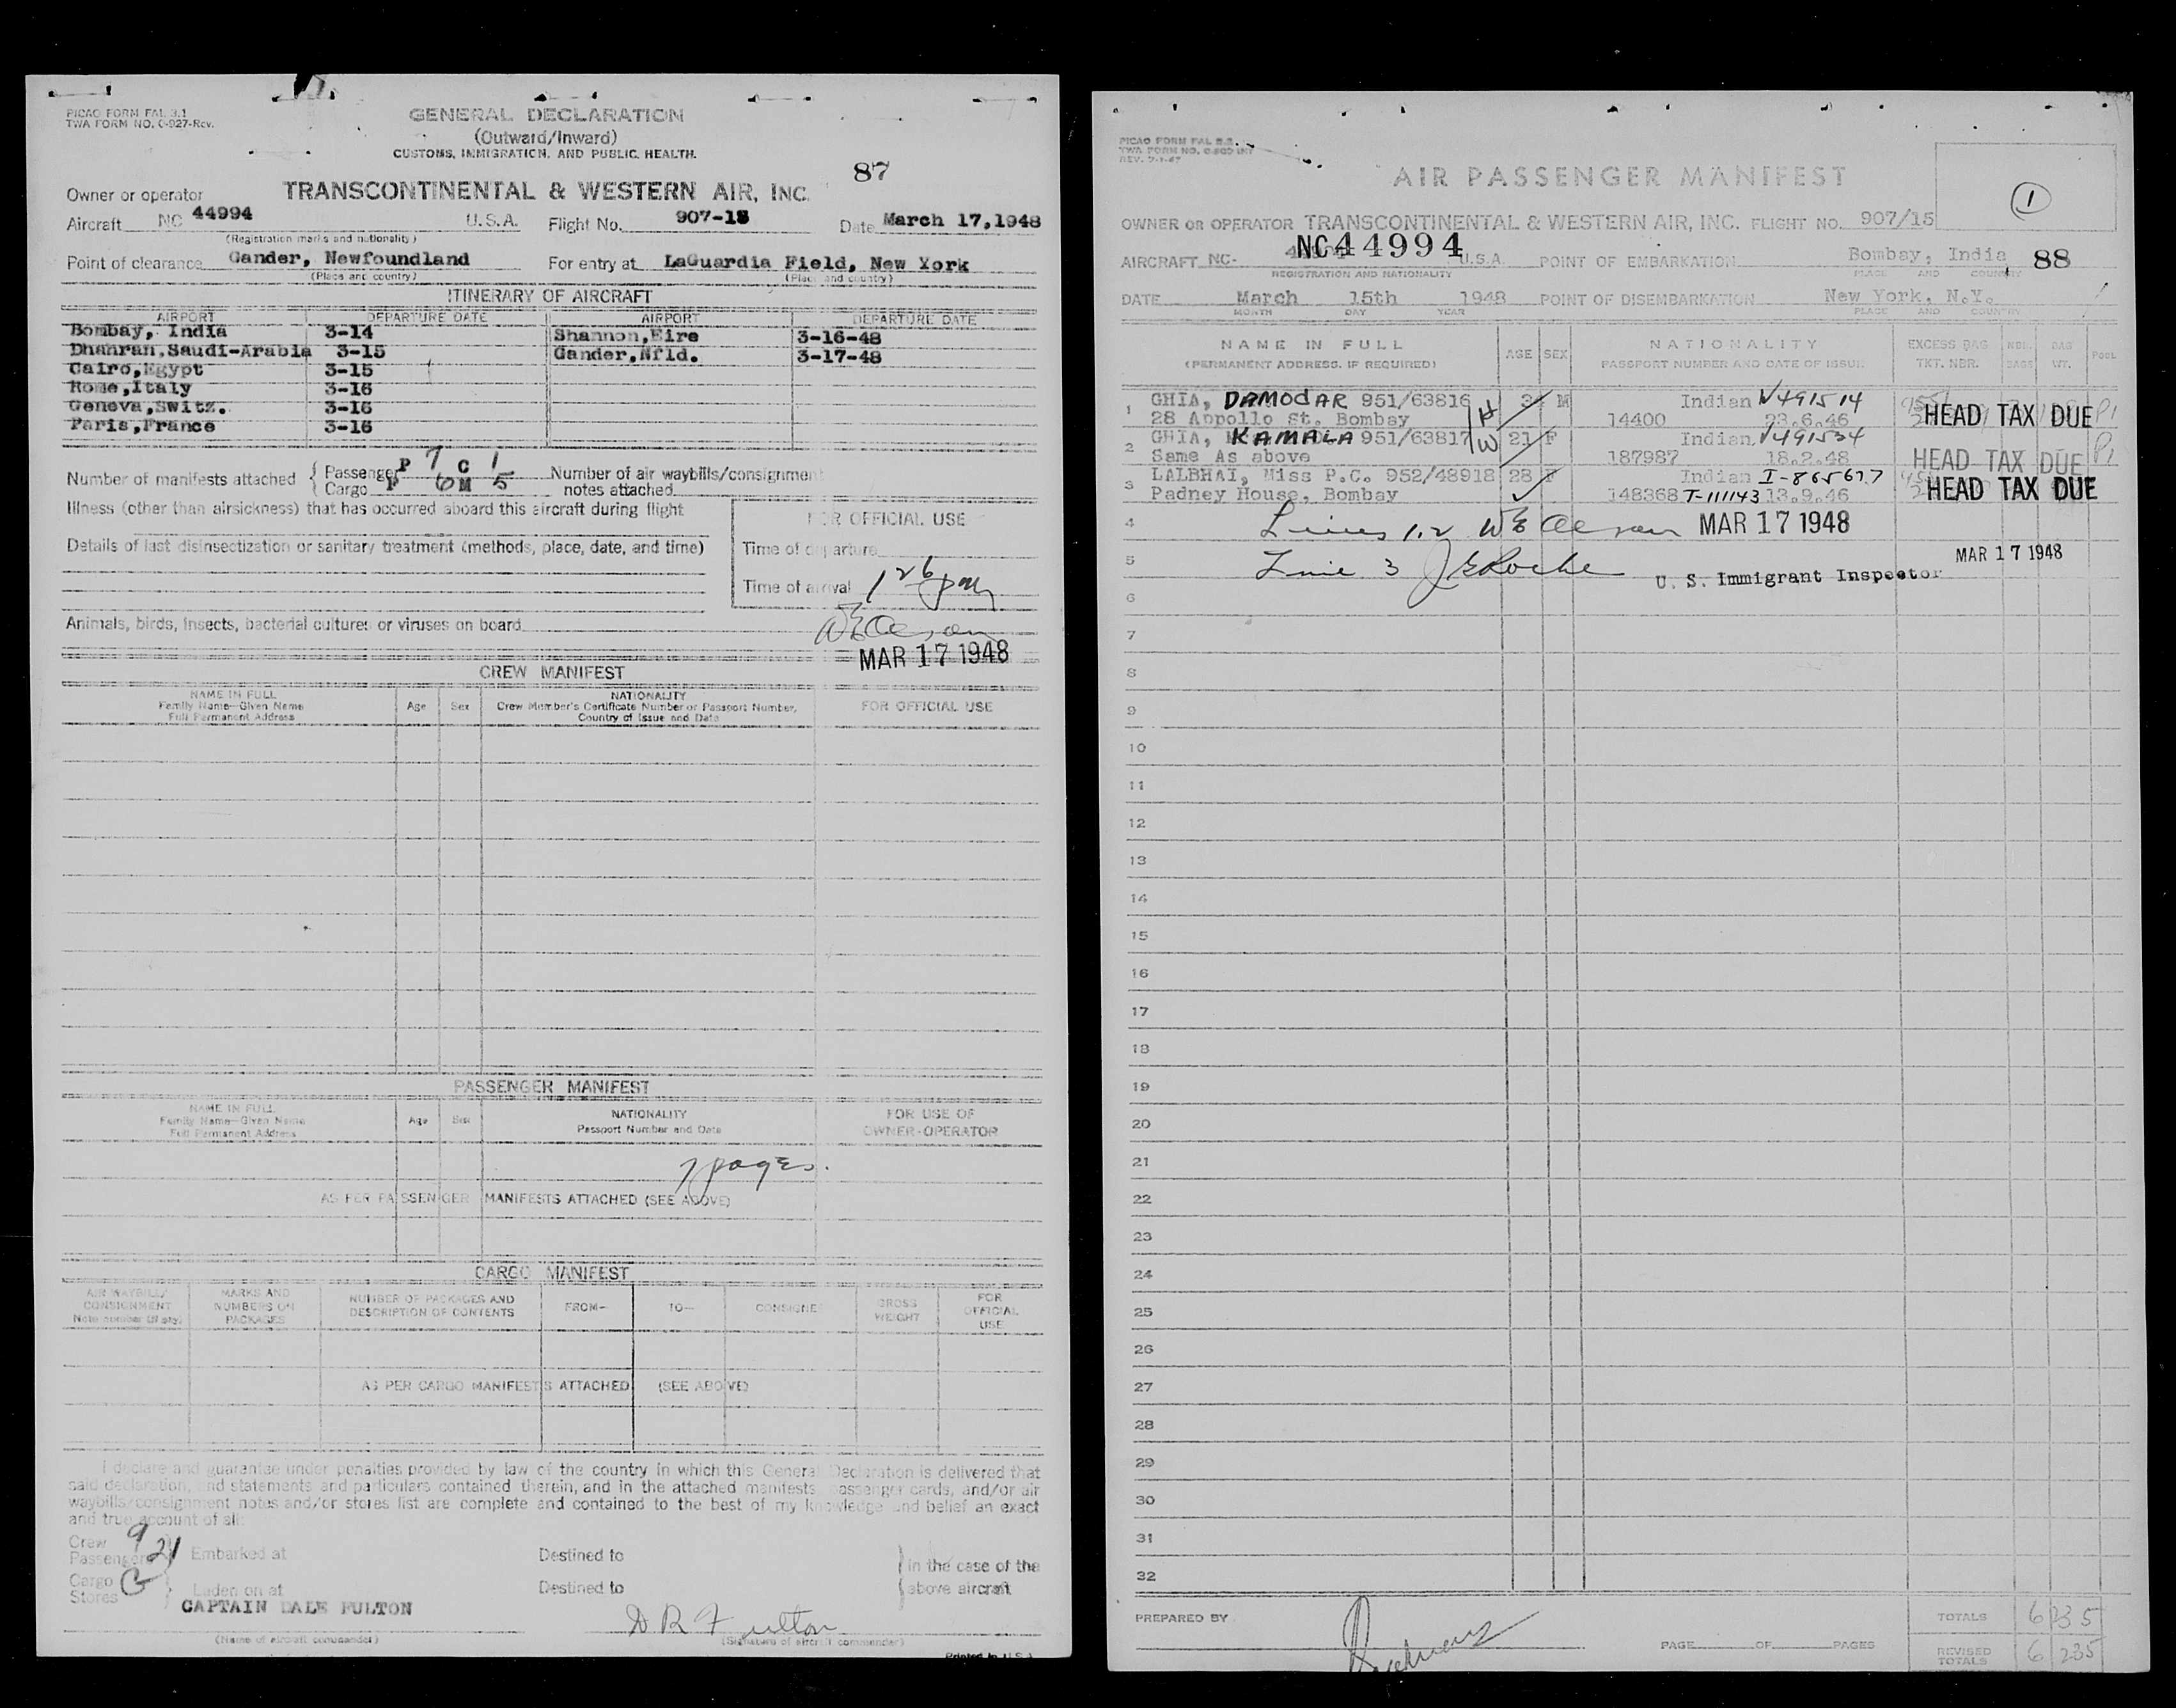 PICAO FORM FAL 3.1
TWA FORM NO. 0-927-Rev.
GENERAL DECLARATION
(Outward/Inward)
CUSTOMS, IMMIGRATION, AND PUBLIC HEALTH.
87
Owner or operator TRANSCONTINENTAL & WESTERN AIR, INC.
Aircraft NC 44994 U.S.A. Flight No. 907-15 Date March 17,1948
(Registration marks and nationality)
Point of clearance Gander, Newfoundland For entry at LaGuardia Field, New York
(Place and country) (Place and country)
ITINERARY OF AIRCRAFT
AIRPORT DEPARTURE DATE AIRPORT DEPARTURE DATE
Bombay, India 3-14 Shannon,Eire 3-16-48
Dhahran,Saudi-Arabia 3-15 Gander,Nfld. 3-17-48
Cairo,Egypt 3-15
Rome,Italy 3-16
Geneva,Switz. 3-16
Paris,France 3-16
Number of manifests attached { Passenger P 7 C 1 Number of air waybills/consignment
Cargo F 6 M 5 notes attached
Illness (other than airsickness) that has occurred aboard this aircraft during flight
FOR OFFICIAL USE
Details of last disinsectization or sanitary treatment (methods, place, date, and time)
Time of departure
Time of arrival 1 26 pm
Animals, birds, insects, bacterial cultures or viruses on board
MAR 17 1948
CREW MANIFEST
NAME IN FULL
Family Name—Given Name
Full Permanent Address
Age Sex
NATIONALITY
Crew Member's Certificate Number or Passport Number,
Country of Issue and Date
FOR OFFICIAL USE
PASSENGER MANIFEST
NAME IN FULL
Family Name—Given Name
Full Permanent Address
Age Sex
NATIONALITY
Passport Number and Date
FOR USE OF
OWNER-OPERATOR
7 pages.
AS PER PASSENGER MANIFESTS ATTACHED (SEE ABOVE)
CARGO MANIFEST
AIR WAYBILL/
CONSIGNMENT
Note number (if any)
MARKS AND
NUMBERS ON
PACKAGES
NUMBER OF PACKAGES AND
DESCRIPTION OF CONTENTS
FROM— TO— CONSIGNEE
GROSS
WEIGHT
FOR
OFFICIAL
USE
AS PER CARGO MANIFESTS ATTACHED (SEE ABOVE)
I declare and guarantee under penalties provided by law of the country in which this General Declaration is delivered that
said declaration, and statements and particulars contained therein, and in the attached manifests passenger cards, and/or air
waybills/consignment notes and/or stores list are complete and contained to the best of my knowledge and belief an exact
and true account of all:
Crew 9
Passengers 21 Embarked at Destined to } in the case of the
Cargo
Stores Laden on at Destined to above aircraft
CAPTAIN DALE FULTON
D R Fulton
(Name of aircraft commander) (Signature of aircraft commander)
Printed in U.S.A.
PICAO FORM FAL
TWA FORM NO.
REV.
AIR PASSENGER MANIFEST
1
OWNER OR OPERATOR TRANSCONTINENTAL & WESTERN AIR, INC. FLIGHT NO. 907/15
AIRCRAFT NC- NC44994 U.S.A. POINT OF EMBARKATION Bombay, India 88
REGISTRATION AND NATIONALITY PLACE AND COUNTRY
DATE March 15th 1948 POINT OF DISEMBARKATION New York, N.Y.
MONTH DAY YEAR PLACE AND COUNTRY
NAME IN FULL
(PERMANENT ADDRESS. IF REQUIRED)
AGE SEX
NATIONALITY
PASSPORT NUMBER AND DATE OF ISSUE
EXCESS BAG
TKT. NBR.
NBR.
BAGS
BAG
WT.
POOL
1 GHIA, DAMODAR 951/63816 H M Indian V491514
28 Appollo St. Bombay 14400 23.6.46 HEAD TAX DUE P1
2 GHIA, KAMALA 951/63817 W 21 F Indian V491534
Same As above 187987 18.2.48 HEAD TAX DUE P1
3 LALBHAI, Miss P.C. 952/48918 28 F Indian I-865677
Padney House, Bombay 148368 T-111143 13.9.46 HEAD TAX DUE
4 Lines 1.2 MAR 17 1948
5 Line 3 J E Roche MAR 17 1948
U. S. Immigrant Inspector
6
7
8
9
10
11
12
13
14
15
16
17
18
19
20
21
22
23
24
25
26
27
28
29
30
31
32
PREPARED BY
PAGE OF PAGES
TOTALS 6 235
REVISED
TOTALS 6 235